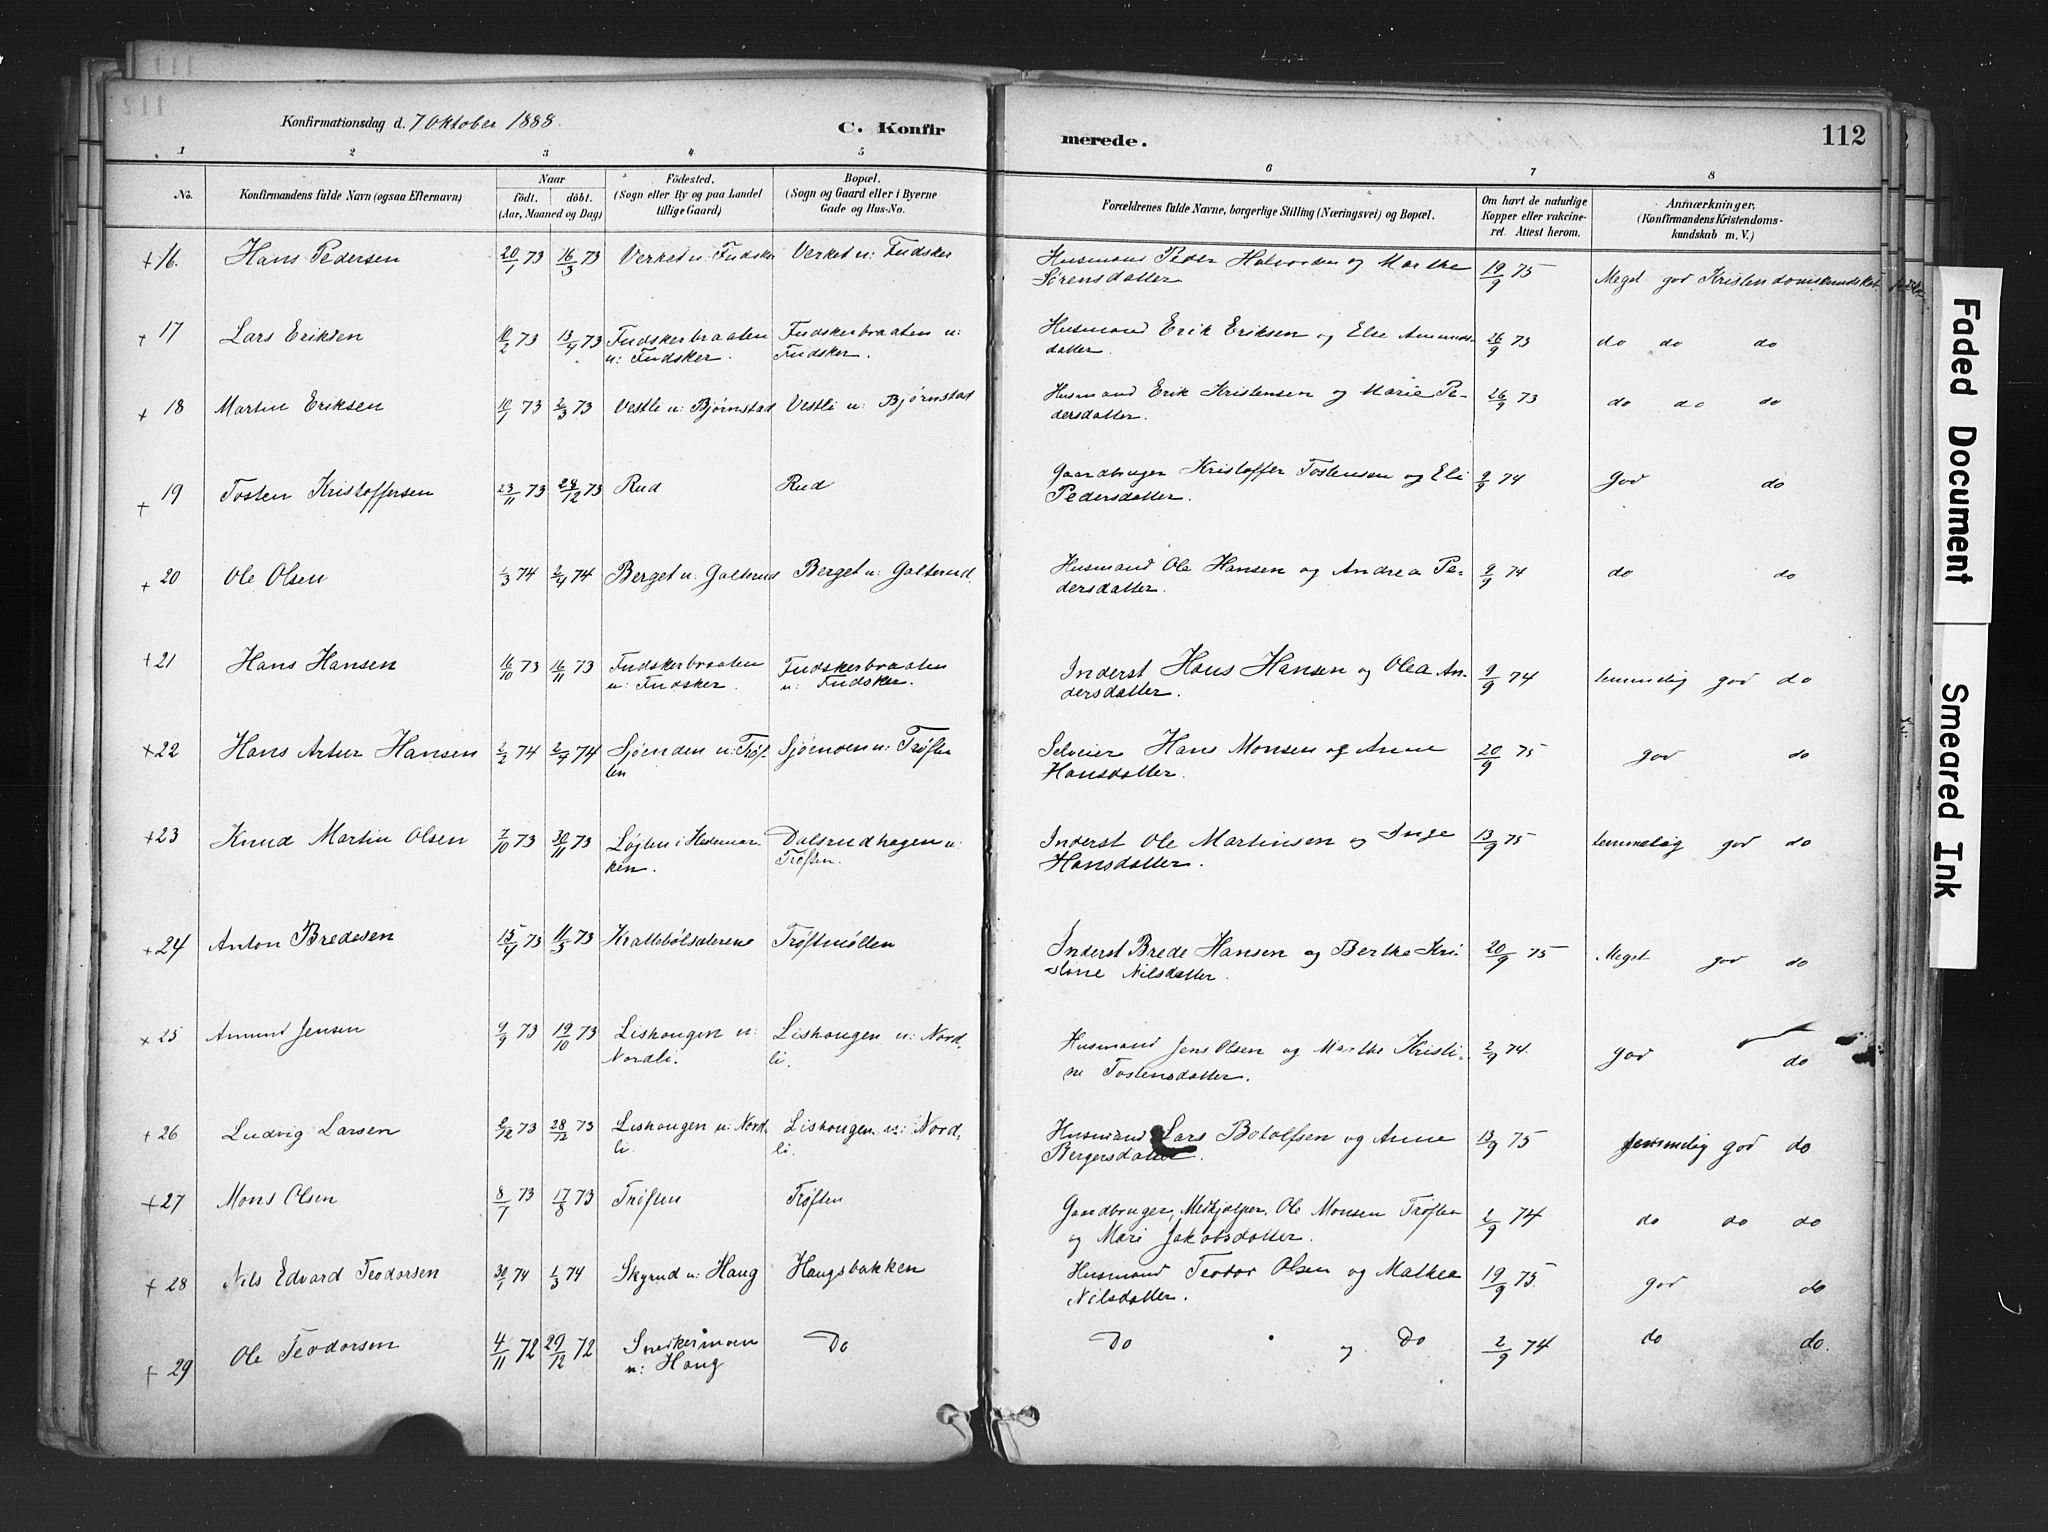 Konfirmationsdag d. 7 Oktober 1888.
C. Konfirmerede.
112
1 2 3 4 5 6 7 8
No.
Konfirmandens fulde Navn (ogsaa Efternavn)
Naar
födt. döbt.
(Aar, Maaned og Dag)
Födested.
(Sogn eller By og paa Landet
tillige Gaard)
Bopæl.
(Sogn og Gaard eller i Byerne
Gade og Hus-No.
Forældrenes fulde Navne, borgerlige Stilling (Næringsvei) og Bopæl.
Om havt de naturlige
Kopper eller vakcine-
ret. Attest herom.
Anmærkninger.
(Konfirmandens Kristendoms-
kundskab m. V.)
+ 16. Hans Pedersen 20/1 73 16/3 73 Verket u: Fudsker Verket u: Fudsker Husmand Peder Halvorsen og Marthe
Sörensdatter 19/9 75 Meget god Kristendomskundskab
+ 17 Lars Eriksen 10/2 73 13/4 73 Fudskerbraaten
u: Fudsker. Fudskerbraaten u:
Fudsker. Husmand Erik Eriksen og Else Amunds-
datter. 26/9 73 do do do
+ 18 Martin Eriksen 10/1 73 2/3 73 Vestli u: Bjørnstad Vestli u: Bjørnstad Husmand Erik Kristensen og Marie Pe-
dersdatter. 26/9 73 do do do
+ 19 Tosten Kristoffersen 23/11 73 28/12 73 Rud Rud Gaardbruger Kristoffer Tostensen og Eli
Pedersdatter. 2/9 74 god do
+ 20 Ole Olsen 1/3 74 2/4 74 Berget u: Galterud Berget u: Galterud. Husmand Ole Hansen og Andrea Pe-
dersdatter. 2/9 74 do do
+ 21 Hans Hansen 16/10 73 16/11 73 Fudskerbraaten
u: Fudsker. Fudskerbraaten
u: Fudsker. Inderst Hans Hansen og Olea An-
dersdatter. 2/9 74 temmelig god do
+ 22 Hans Artur Hansen 2/2 74 2/4 74 Sjøenden u: Trøf-
ten Sjøenden u: Trøften Selveier Hans Monsen og Anne
Hansdatter. 20/9 75 god do
+ 23 Knud Martin Olsen 7/10 73 30/11 73 Løjten i Hedemar-
ken. Dalsrudhagen u:
Trøften. Inderst Ole Martinsen og Inge
Hansdatter. 13/9 75 temmelig god do
+ 24 Anton Bredesen 15/4 73 11/5 73 Krattebølsæterene Trøftmøllen Inderst Brede Hansen og Berthe Kri-
stine Nilsdatter. 20/9 75 Meget god do
+ 25 Amund Jensen 9/9 73 19/10 73 Lishougen u:
Nordli. Lishougen u: Nord-
li. Husmand Jens Olsen og Marthe Kristi-
ne Tostensdatter. 2/9 74. god do
+ 26 Ludvig Larsen 2/12 73 28/12 73 Lishougen u: Nord-
li. Lishougen u: Nord-
li. Husmand Lars Botolfsen og Anne
Bergersdatter. 13/9 75 temmelig god do
+ 27 Mons Olsen 8/7 73 17/8 73 Trøften Trøften Gaardbruger, Medhjælper, Ole Monsen Trøften
og Mari Jakobsdatter. 2/9 74 do do do
+ 28 Nils Edvard Teodorsen 30/1 74 1/3 74 Skyrud u: Haug Haugsbakken Husmand Teodor Olsen og Mathea
Nilsdatter. 19/9 75. god do
+ 29 Ole Teodorsen 4/11 72 29/12 72 Snekkermoen
u: Haug Do Do og Do 2/9 74 do do.
Faded Document
Smeared Ink